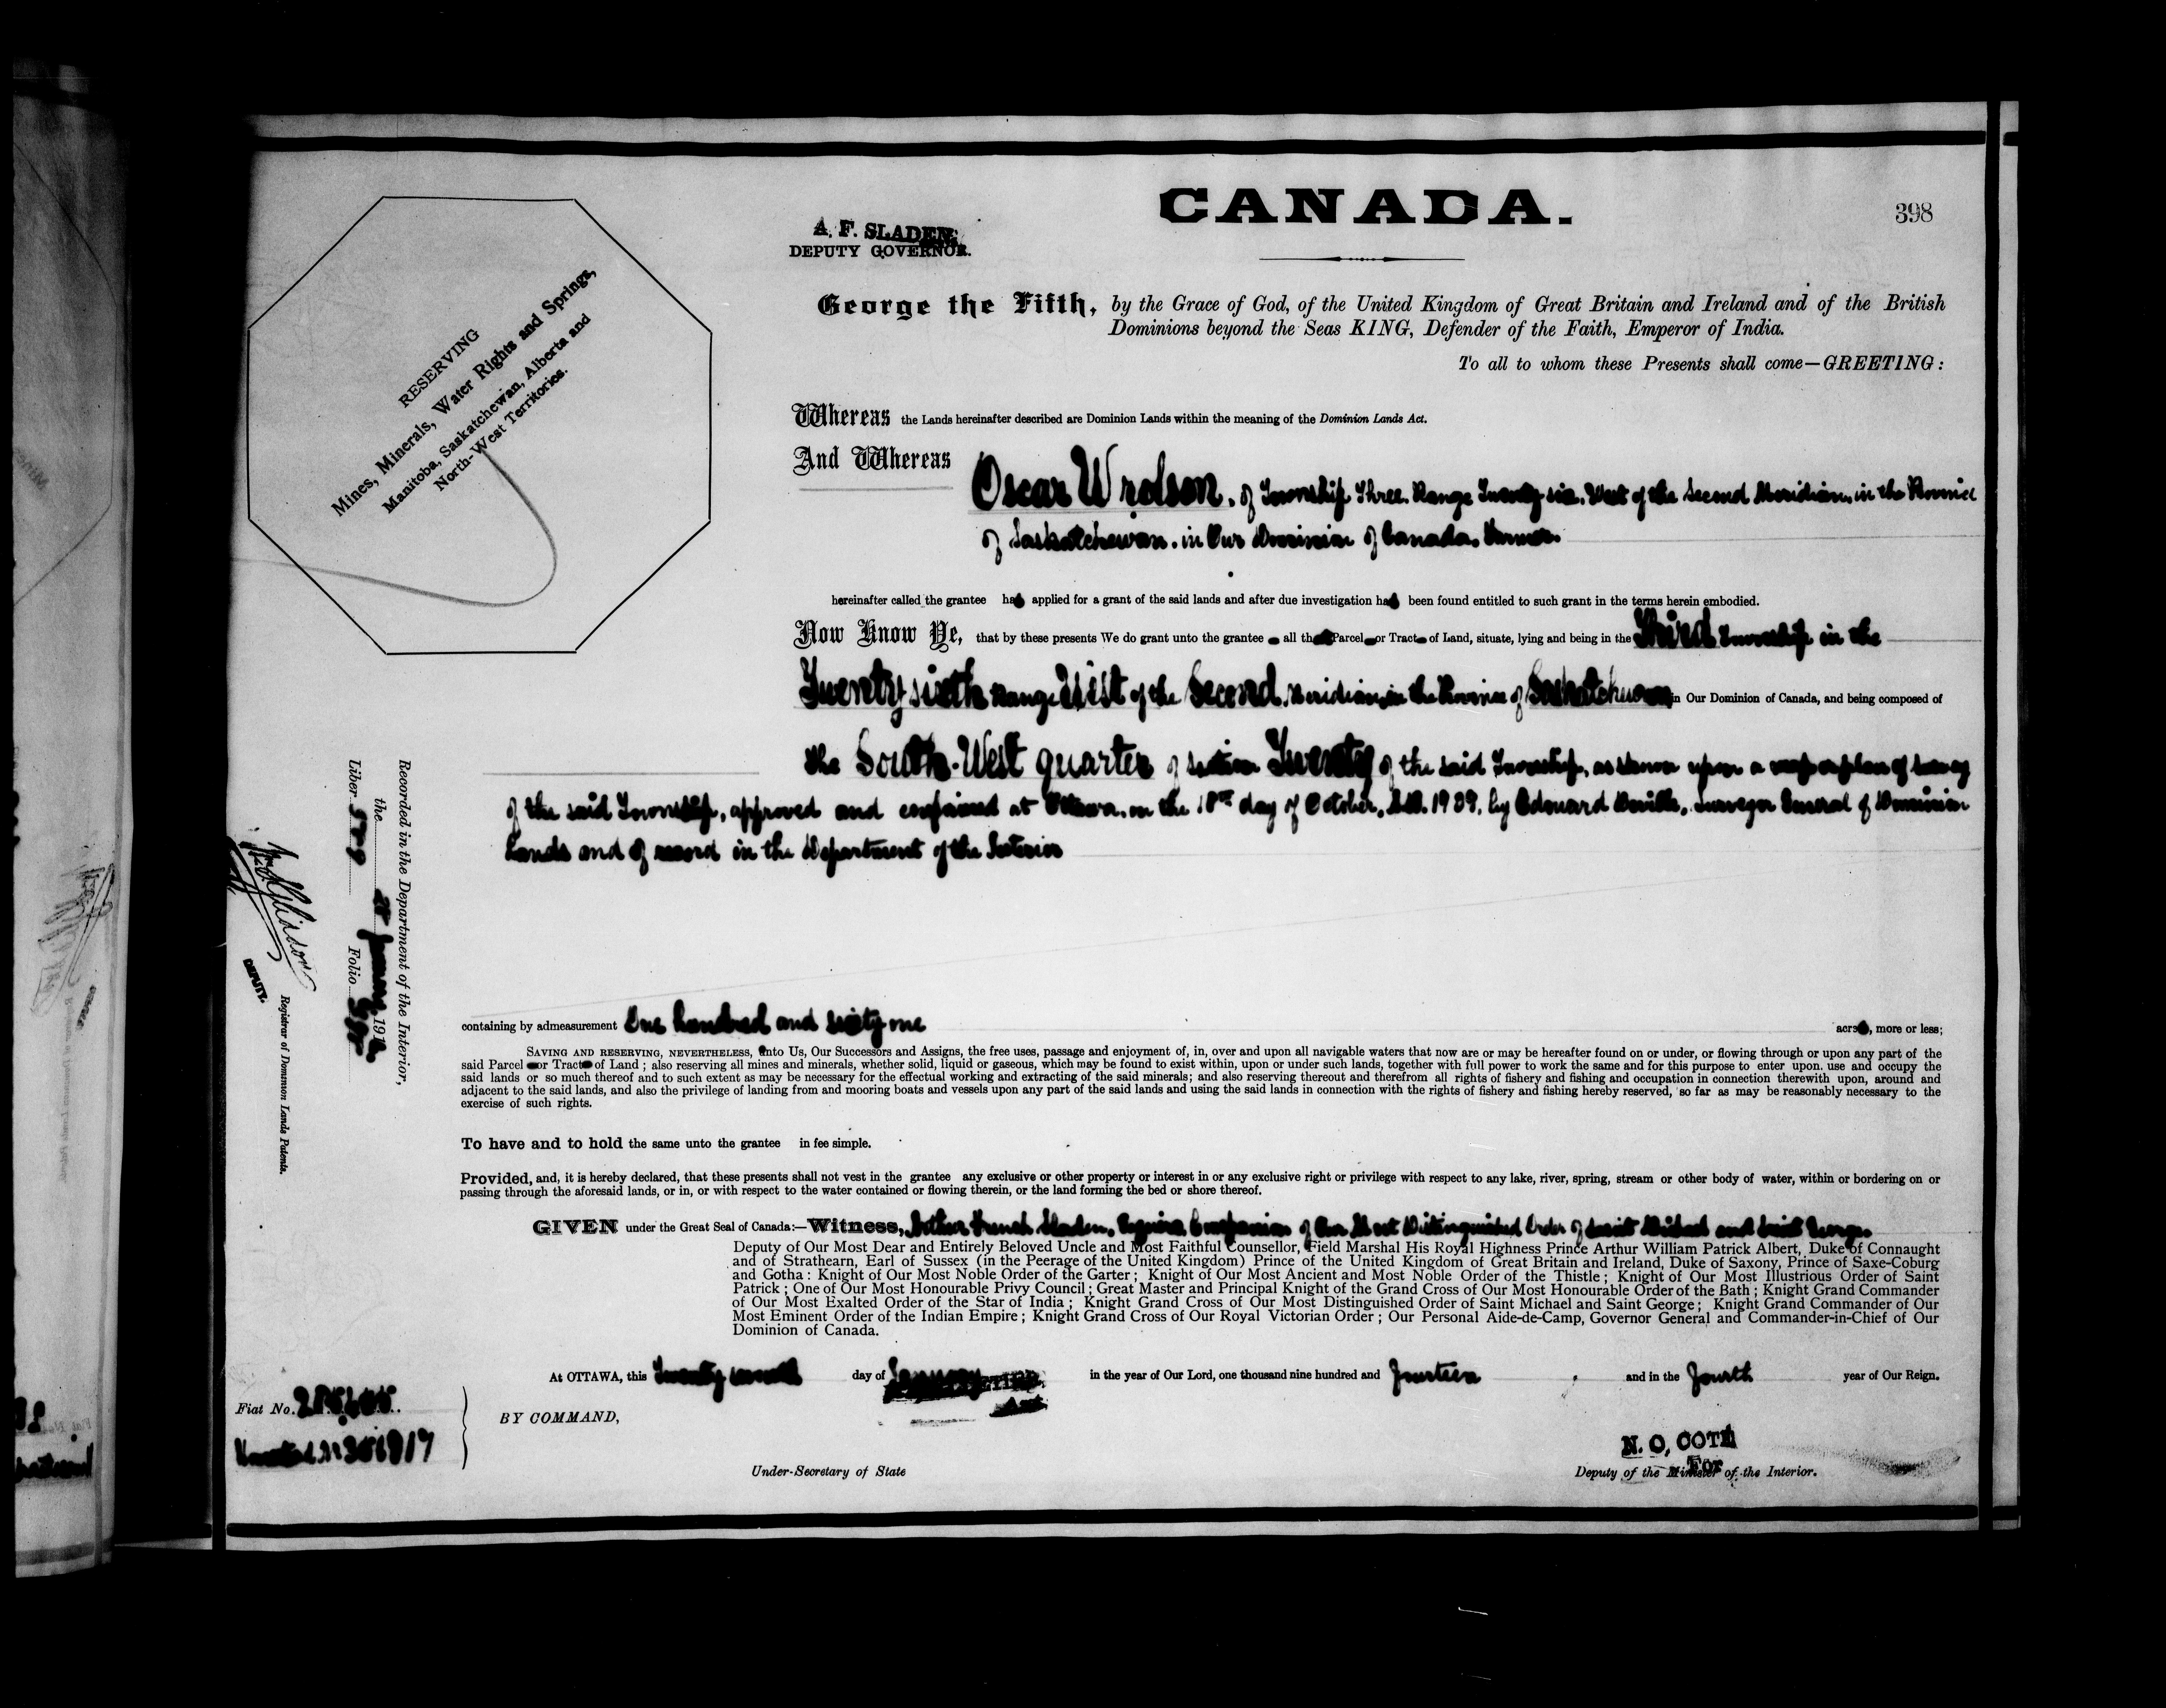 CANADA.
398
A. F. SLADEN,
DEPUTY GOVERNOR.
George the Fifth, by the Grace of God, of the United Kingdom of Great Britain and Ireland and of the British
Dominions beyond the Seas KING, Defender of the Faith, Emperor of India.
To all to whom these Presents shall come—GREETING:
RESERVING
Mines, Minerals, Water Rights and Springs,
Manitoba, Saskatchewan, Alberta and
North-West Territories.
Whereas the Lands hereinafter described are Dominion Lands within the meaning of the Dominion Lands Act.
And Whereas
Oscar Wrolson, of Township Three, Range Twenty six, West of the Second Meridian, in the Province
of Saskatchewan, in Our Dominion of Canada, Farmer
hereinafter called the grantee has applied for a grant of the said lands and after due investigation has been found entitled to such grant in the terms herein embodied.
Now Know Ye, that by these presents We do grant unto the grantee all that Parcel or Tract of Land, situate, lying and being in the Third Township in the
Twenty sixth Range West of the Second Meridian, in the Province of Saskatchewan in Our Dominion of Canada, and being composed of
the South-West quarter of section Twenty of the said Township, as shown upon a map or plan of survey
of the said Township, approved and confirmed at Ottawa, on the 18th day of October, A.D. 1909, by Edouard Deville, Surveyor General of Dominion
Lands and of record in the Department of the Interior
containing by admeasurement One hundred and sixty one acres, more or less;
SAVING AND RESERVING, NEVERTHELESS, unto Us, Our Successors and Assigns, the free uses, passage and enjoyment of, in, over and upon all navigable waters that now are or may be hereafter found on or under, or flowing through or upon any part of the
said Parcel or Tract of Land; also reserving all mines and minerals, whether solid, liquid or gaseous, which may be found to exist within, upon or under such lands, together with full power to work the same and for this purpose to enter upon, use and occupy the
said lands or so much thereof and to such extent as may be necessary for the effectual working and extracting of the said minerals; and also reserving thereout and therefrom all rights of fishery and fishing and occupation in connection therewith upon, around and
adjacent to the said lands, and also the privilege of landing from and mooring boats and vessels upon any part of the said lands and using the said lands in connection with the rights of fishery and fishing hereby reserved, so far as may be reasonably necessary to the
exercise of such rights.
To have and to hold the same unto the grantee in fee simple.
Provided, and, it is hereby declared, that these presents shall not vest in the grantee any exclusive or other property or interest in or any exclusive right or privilege with respect to any lake, river, spring, stream or other body of water, within or bordering on or
passing through the aforesaid lands, or in, or with respect to the water contained or flowing therein, or the land forming the bed or shore thereof.
GIVEN under the Great Seal of Canada:—Witness, Arthur French Sladen, Esquire, Companion of Our Most Distinguished Order of Saint Michael and Saint George,
Deputy of Our Most Dear and Entirely Beloved Uncle and Most Faithful Counsellor, Field Marshal His Royal Highness Prince Arthur William Patrick Albert, Duke of Connaught
and of Strathearn, Earl of Sussex (in the Peerage of the United Kingdom) Prince of the United Kingdom of Great Britain and Ireland, Duke of Saxony, Prince of Saxe-Coburg
and Gotha: Knight of Our Most Noble Order of the Garter; Knight of Our Most Ancient and Most Noble Order of the Thistle; Knight of Our Most Illustrious Order of Saint
Patrick; One of Our Most Honourable Privy Council; Great Master and Principal Knight of the Grand Cross of Our Most Honourable Order of the Bath; Knight Grand Commander
of Our Most Exalted Order of the Star of India; Knight Grand Cross of Our Most Distinguished Order of Saint Michael and Saint George; Knight Grand Commander of Our
Most Eminent Order of the Indian Empire; Knight Grand Cross of Our Royal Victorian Order; Our Personal Aide-de-Camp, Governor General and Commander-in-Chief of Our
Dominion of Canada.
At OTTAWA, this Twenty day of January in the year of Our Lord, one thousand nine hundred and fourteen and in the fourth year of Our Reign.
BY COMMAND,
Under-Secretary of State
N. O. COTÉ
For
Deputy of the Minister of the Interior.
Fiat No.
Recorded in the Department of the Interior,
the 191
Liber Folio
DEPUTY. Registrar of Dominion Lands Patents.